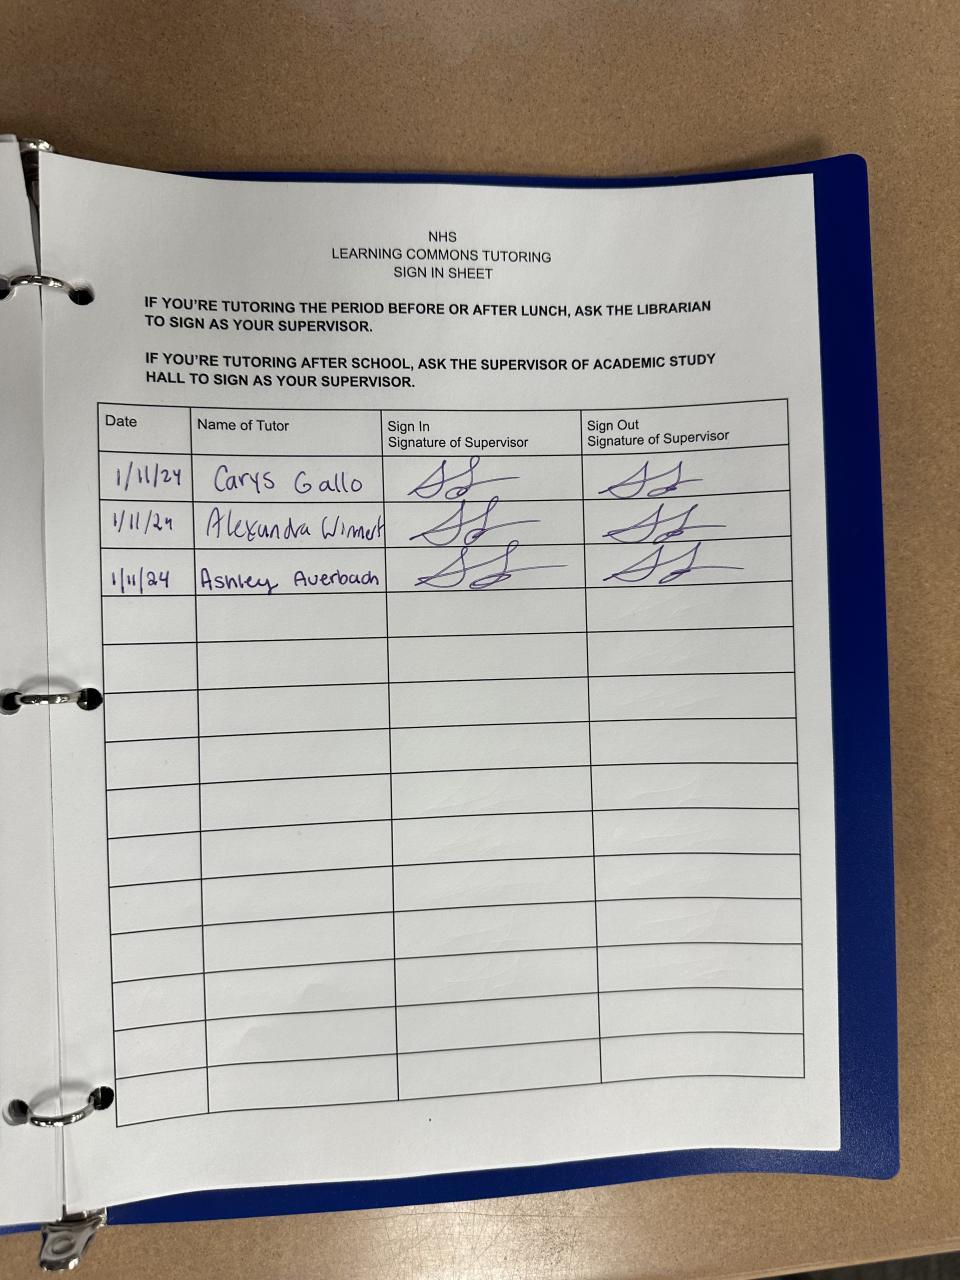 NHS
LEARNING COMMONS TUTORING
SIGN IN SHEET
IF YOU'RE TUTORING THE PERIOD BEFORE OR AFTER LUNCH, ASK THE LIBRARIAN
TO SIGN AS YOUR SUPERVISOR.
IF YOU'RE TUTORING AFTER SCHOOL, ASK THE SUPERVISOR OF ACADEMIC STUDY
HALL TO SIGN AS YOUR SUPERVISOR.
Date Name of Tutor Sign In Sign Out
Signature of Supervisor Signature of Supervisor
1/11/24 Carys Gallo
1/11/24 Alexandra
1/11/24 Ashley Averbach